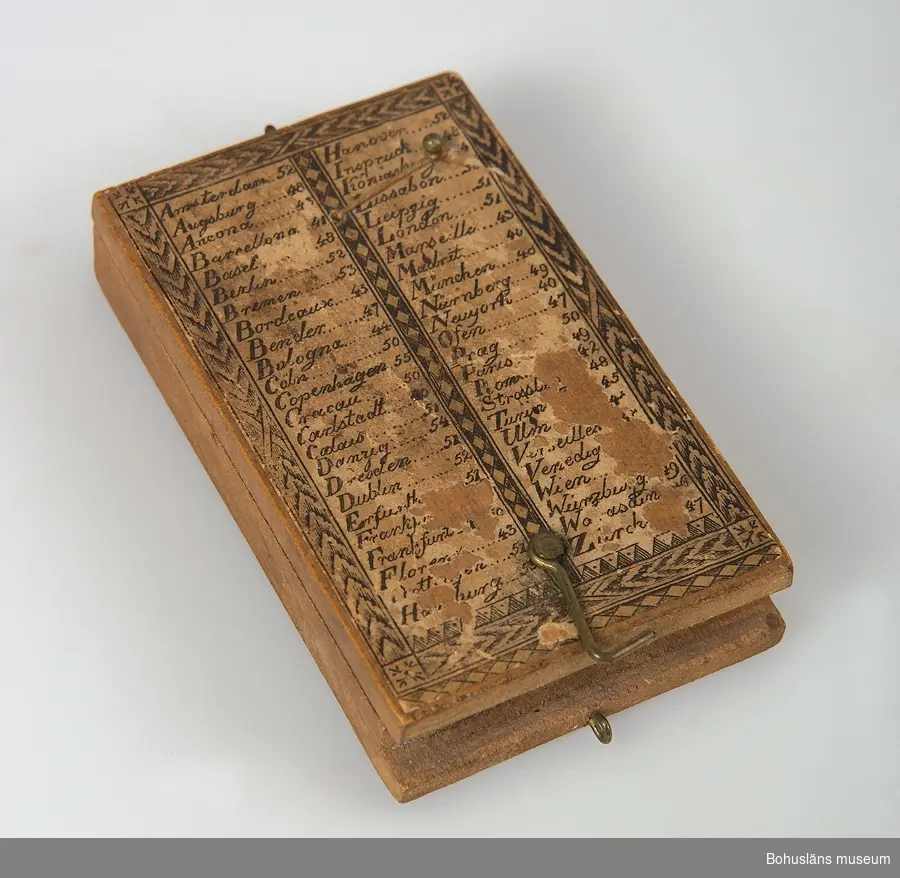 Amsterdam. 52
Augsburg 48
Ancona. 43
Barcellona 41
Basel 48
Berlin. 52
Bremen. 53
Bordeaux. 45
Bender. 47
Bologna. 44
Cöln 50
Copenhagen 55
Cracau 50
Carlstadt.
Calais
Danzig 54
Dresden 51
Dublin
Erfurth 51
Frankf
Frankfurt
Floren 43
Ha burg
Hanover. 52
Inspruck
Königsb
Lussabon
Leipzig 51
London. 51
Marseille. 43
Madrit. 40
München. 48
Nürnberg 49
Neuyork 40
Ofen 47
Prag 50
Paris. 49
Rom. 42
Strasb 48
Turin 45
Ulm
Verseilles
Venedig
Wien
Würzburg 49
Wa asdin
Zürch. 47
Bohusläns museum